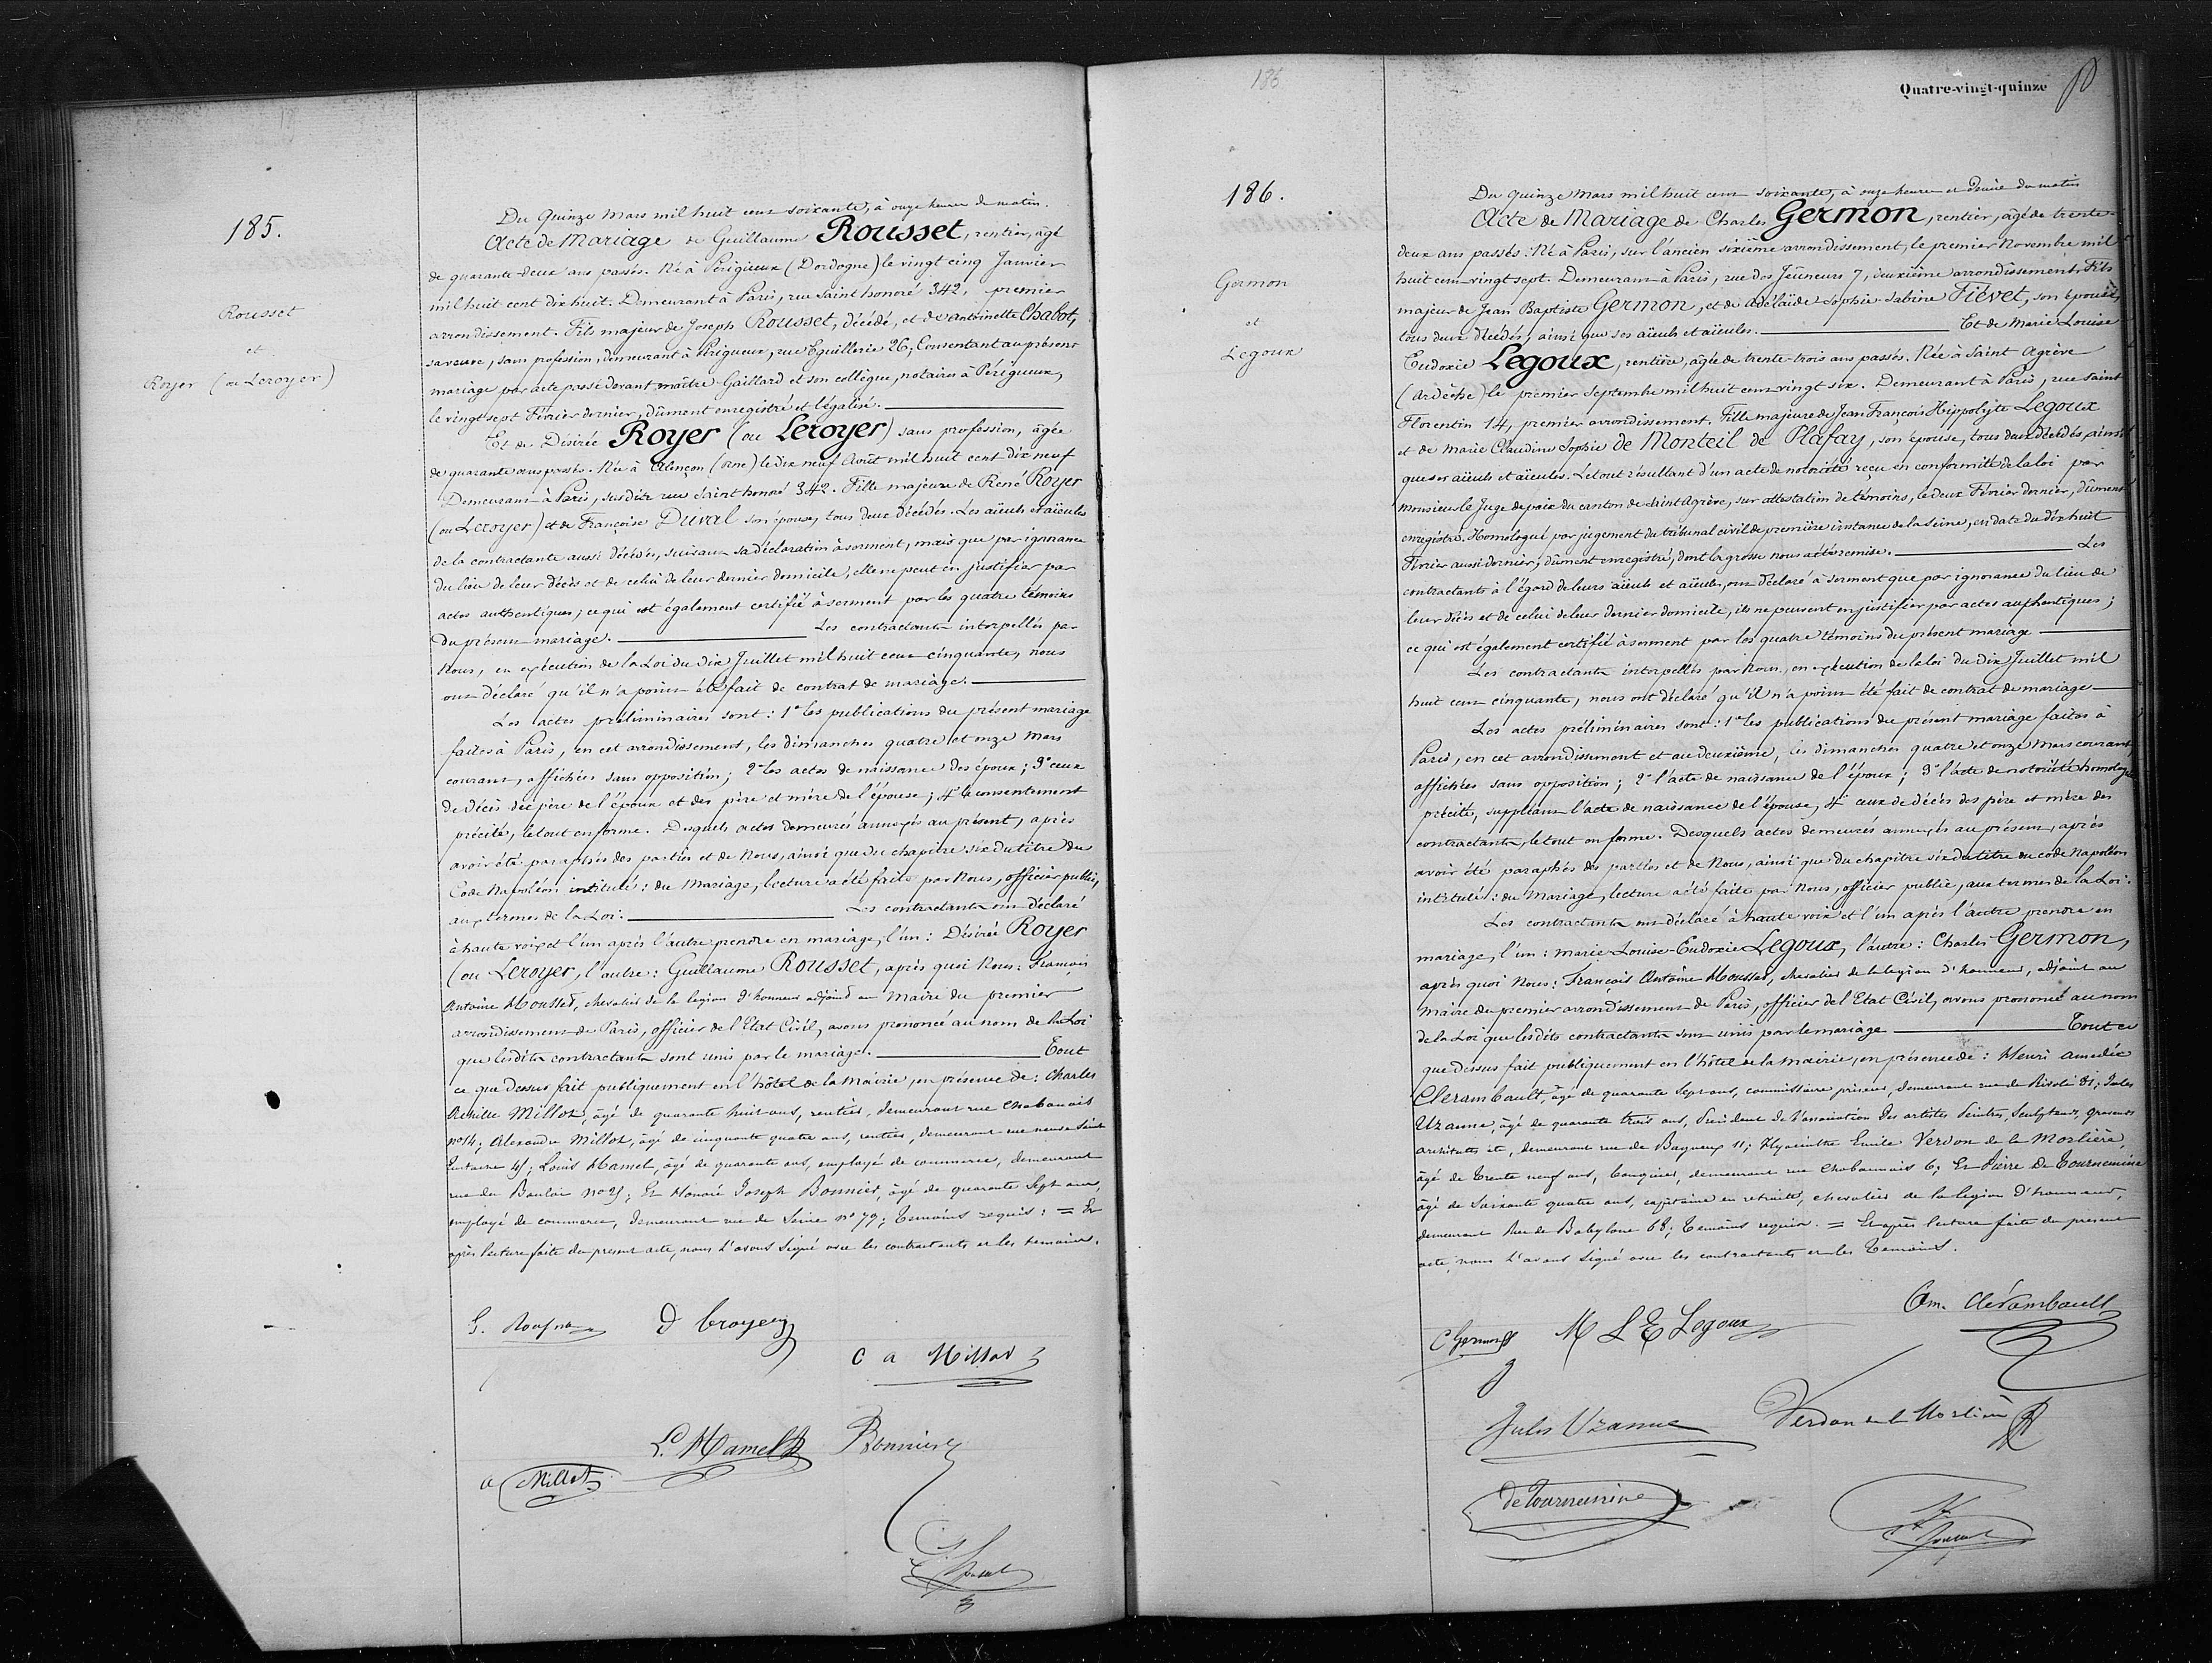 185.
Rousset
et
Royer (ou Leroyer)
Du Quinze Mars mil huit cent soixante, à onze heures du matin.
Acte de Mariage de Guillaume Rousset, rentier, âgé
de quarante-deux ans passés. Né à Périgueux (Dordogne) le vingt cinq Janvier
mil huit cent dix huit. Demeurant à Paris, rue Saint honoré 342, premier
arrondissement. Fils majeur de Joseph Rousset, décédé, et de antoinette Chabot,
sa veuve, sans profession, demeurant à Périgueux, rue Eguillerie 26, Consentant au présent
mariage par acte passé devant maître Gaillard et son collègue, notaires à Périgueux,
le vingt sept Février dernier, dûment enregistré et légalisé.
Et de Désirée Royer (ou Leroyer) sans profession, âgée
de quarante ans passés. Née à Alençon (orne) le dix neuf Août mil huit cent dix neuf
Demeurant à Paris, susdite rue Saint honoré 342. Fille majeure de René Royer
(ou Leroyer) et de Françoise Duval son épouse, tous deux décédés. Les aïeuls et aïeules
de la contractante aussi décédés, suivant sa déclaration à serment, mais que par ignorance
du lieu de leur décès et de celui de leur dernier domicile, elle ne peut en justifier par
actes authentiques; ce qui est également certifié à serment par les quatre témoins
du présent mariage. Les contractants interpellés par
Nous, en exécution de la Loi du Dix Juillet mil huit cent cinquante, nous
ont déclaré qu'il n'a point été fait de contrat de mariage.
Les actes préliminaires sont: 1° les publications du présent mariage
faites à Paris, en cet arrondissement, les dimanches quatre et onze Mars
courant, affichées sans opposition; 2° les actes de naissance des époux; 3° ceux
de décès du père de l'époux et des père et mère de l'épouse; 4° le consentement
précité, le tout en forme. Desquels actes demeurés annexés au présent, après
avoir été paraphés des parties et de Nous, ainsi que du chapitre six du titre du
Code Napoléon intitulé: du Mariage, lecture a été faite par Nous, officier public,
aux termes de la Loi. Les contractants ont déclaré
à haute voix et l'un après l'autre prendre en mariage, l'un: Désirée Royer
(ou Leroyer, l'autre: Guillaume Rousset, après quoi Nous: François
Antoine Mousset, chevalier de la légion d'honneur adjoint au Maire du premier
arrondissement de Paris, officier de l'Etat Civil, avons prononcé au nom de la Loi
que lesdits contractants sont unis par le mariage. Tout
ce que dessus fait publiquement en l'hôtel de la Mairie, en présence de: Charles
Achille Millot, âgé de quarante huit ans, rentier, demeurant rue Chabanais
n° 14; Alexandre Millot, âgé de cinquante quatre ans, rentier, demeurant rue neuve Saint
Louis Hamel, âgé de quarante ans, employé de commerce, demeurant
rue du Bouloi n° 25; Et Honoré Joseph Bonnier, âgé de quarante Sept ans,
employé de commerce, demeurant rue de Seine n° 79; Témoins requis: = Et
après lecture faite du présent acte, nous l'avons signé avec les contractants et les témoins.
D Leroyer
C A Millot
L. Hamel Bonnier
A Millot
186
Quatre-vingt-quinze
186.
Germon
et
Legoux
Du quinze Mars mil huit cent soixante, à onze heures et demie du matin
Acte de Mariage de Charles Germon, rentier, âgé de trente-
deux ans passés. Né à Paris, sur l'ancien sixième arrondissement, le premier Novembre mil
huit cent vingt sept. Demeurant à Paris, rue des Jeûneurs 7, deuxième arrondissement. Fils
majeur de Jean Baptiste Germon, et de Adélaïde Sophie Sabine Fiévet, son épouse,
tous deux décédés, ainsi que ses aïeuls et aïeules. Et de Marie Louise
Eudoxie Legoux, rentière, âgée de trente-trois ans passés. Née à Saint Agrève
(ardèche) le premier Septembre mil huit cent vingt six. Demeurant à Paris, rue Saint
Florentin 14, premier arrondissement. Fille majeure de Jean François Hippolyte Legoux
et de Marie Claudine Sophie de Monteil de Plafay, son épouse, tous deux décédés, ainsi
que ses aïeuls et aïeules. Le tout résultant d'un acte de notoriété reçu en conformité de la loi par
Monsieur le Juge de paix du canton de Saint Agrève, sur attestation de témoins, le deux Février dernier, dûment
enregistré. Homologué par jugement du tribunal civil de première instance de la Seine, en date du dix huit
Février aussi dernier, dûment enregistré, dont la grosse nous a été remise. Les
contractants à l'égard de leurs aïeuls et aïeules, ont déclaré à serment que par ignorance du lieu de
leur décès et de celui de leur dernier domicile, ils ne peuvent en justifier par actes authentiques;
ce qui est également certifié à serment par les quatre témoins du présent mariage
Les contractants interpellés par Nous, en exécution de la loi du dix Juillet mil
huit cent cinquante, nous ont déclaré qu'il n'a point été fait de contrat de mariage
Les actes préliminaires sont: 1° les publications du présent mariage faites à
Paris, en cet arrondissement et au deuxième, les dimanches quatre et onze Mars courant,
affichées sans opposition; 2° l'acte de naissance de l'époux; 3° l'acte de notoriété homologué
précité, suppléant l'acte de naissance de l'épouse, 4° ceux de décès des père et mère des
contractants, le tout en forme. Desquels actes demeurés annexés au présent, après
avoir été paraphés des parties et de Nous, ainsi que du chapitre six du titre du code Napoléon
intitulé: du Mariage, lecture a été faite par Nous, officier public, aux termes de la Loi.
Les contractants ont déclaré à haute voix et l'un après l'autre prendre en
mariage, l'un: Marie-Louise-Eudoxie Legoux, l'autre: Charles Germon,
après quoi Nous: François Antoine Mousset, chevalier de la légion d'honneur, adjoint au
Maire du premier arrondissement de Paris, officier de l'Etat Civil, avons prononcé au nom
de la Loi que lesdits contractants sont unis par le mariage Tout ce
que dessus fait publiquement en l'hôtel de la mairie, en présence de: Henri amédée
Clerambault, âgé de quarante Sept ans, commissaire priseur, demeurant rue de Rivoli 81; Jules
Uzanne, âgé de quarante trois ans, Président de l'association des artistes Peintres, Sculpteurs, graveurs
architectes etc, demeurant rue de Bagneux 11; Hyacinthe Emile Verdon de la Morlière,
âgé de Trente neuf ans, banquier, demeurant rue Chabannais 6; Et Pierre De Tournemine
âgé de Soixante quatre ans, capitaine en retraite, chevalier de la légion d'honneur,
demeurant Rue de Babylone 68; Témoins requis. = Et après lecture faite du présent
acte, nous l'avons signé avec les contractants et les Témoins.
C Germon M L E Legoux Am. Clérambault
Jules Uzanne Verdon de la Morlière
de Tournemine